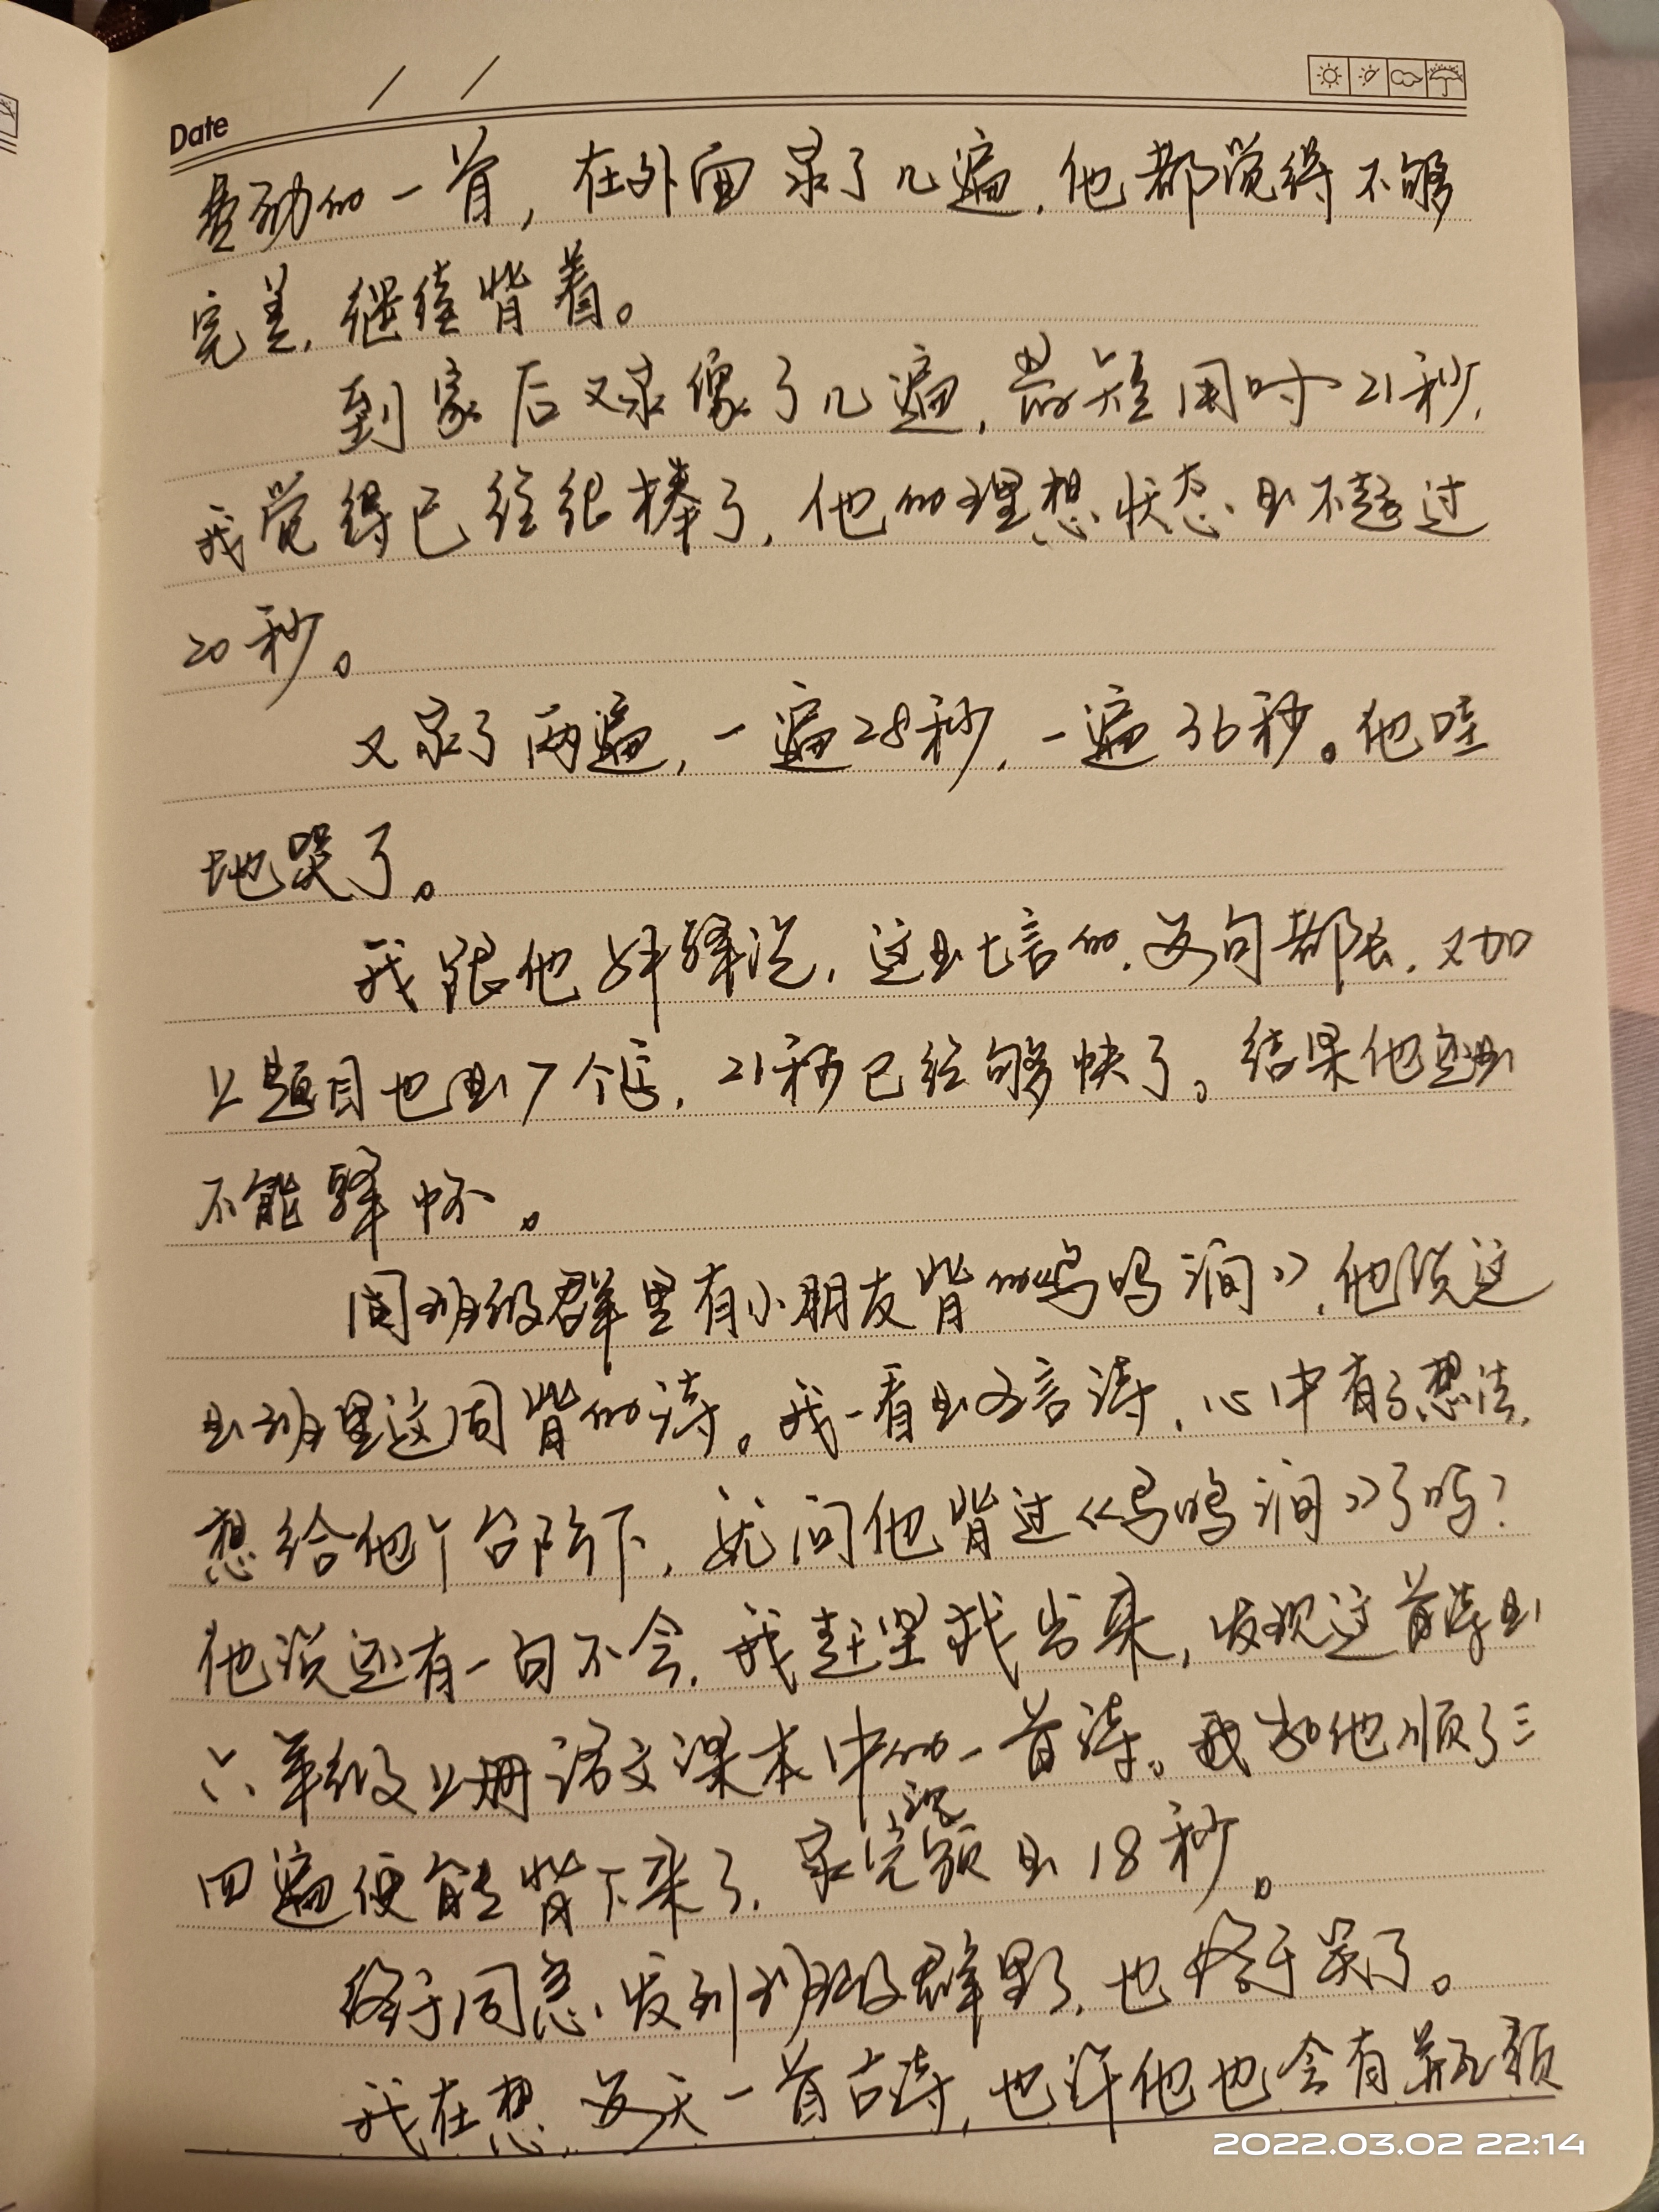 Date / /
劳动的一首，在外面录了几遍，他都觉得不够
完美，继续背着。
到家后又录像了几遍，最短用时21秒，
我觉得已经很棒了，他的理想状态是不超过
20秒。
又录了两遍，一遍28秒，一遍36秒。他哇
地哭了。
我跟他解释说，这是七言的，每句都长，又加
上题目也是7个字，21秒已经够快了。结果他还是
不能释怀。
周班级群里有小朋友背的《鸟鸣涧》，他说这
是班里这周背的诗。我一看是五言诗，心中有了想法，
想给他个台阶下，就问他背过《鸟鸣涧》了吗？
他说还有一句不会，我赶紧找出来，发现这首诗是
六年级上册语文课本中的一首诗。我和他顺了三
四遍便能背下来了，录完视频是18秒。
终于同意发到班级群里了，也终于笑了。
我在想，每天一首古诗，也许他也会有瓶颈
2022.03.02 22:14